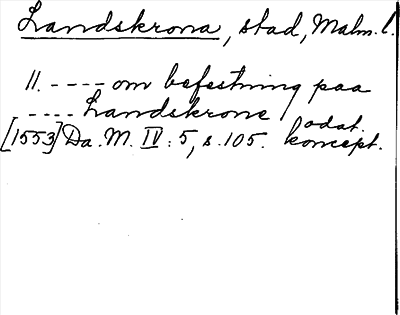 Landskrona, stad, Malm. l.
11. - - - - om befestning paa
- - - - Landskrone
odat.
[1553] Da. M. IV : 5, s. 105. koncept.